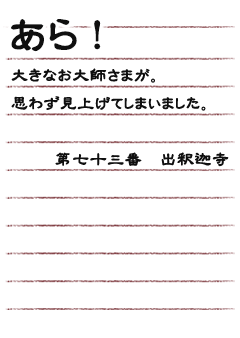 あら！
大きなお大師さまが。
思わず見上げてしまいました。
第七十三番　出釈迦寺